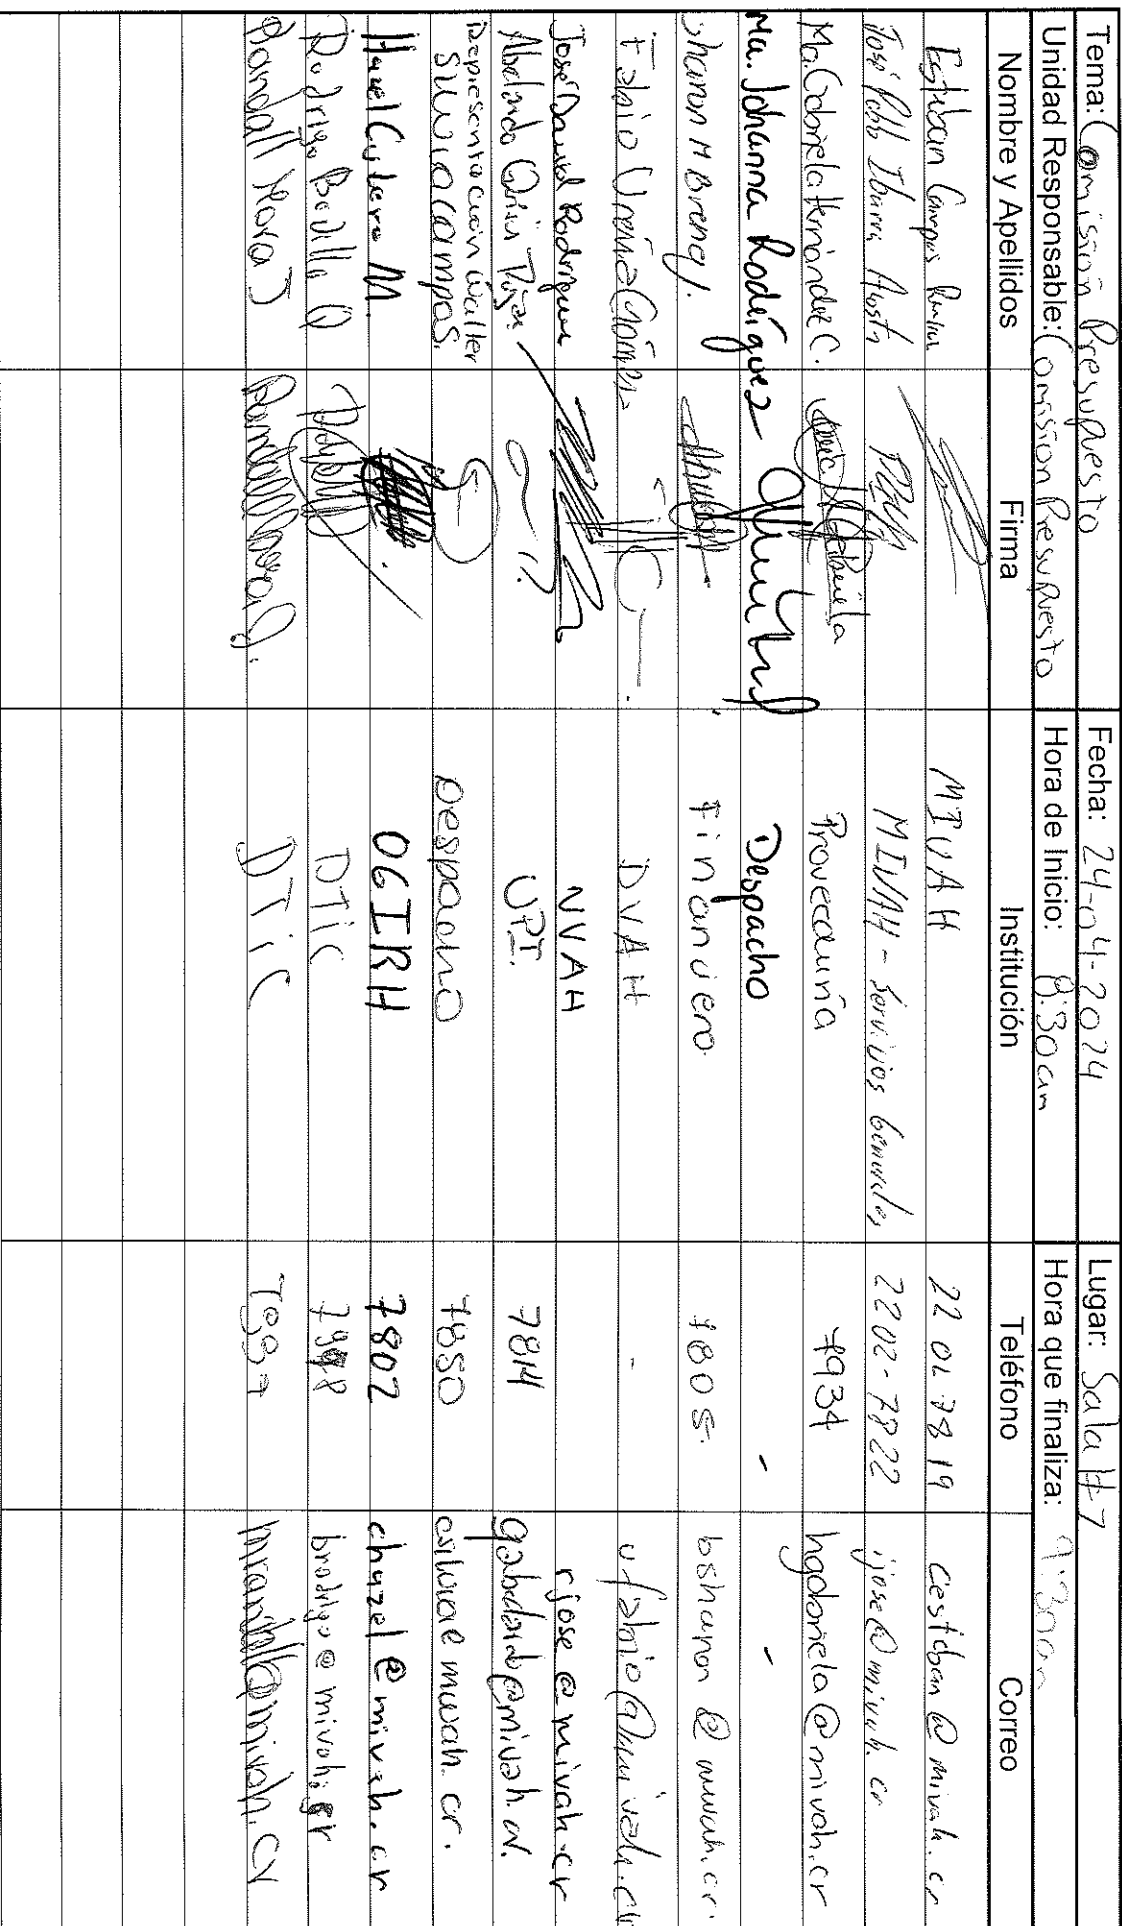 Tema: Comisión Presupuesto Fecha: 24-04-2024 Lugar: Sala #7
Unidad Responsable: Comisión Presupuesto Hora de Inicio: 8:30am Hora que finaliza: 9:30am
Nombre y Apellidos Firma Institución Teléfono Correo
Esteban Campos MIVAH 22 02 7819 cesteban@mivah.cr
José Pablo Ibarra MIVAH - Servicios Generales 2202-7822 ijose@mivah.cr
Ma. Gabriela Hernández C. Proveeduría 7934 hgabriela@mivah.cr
Ma. Johanna Rodríguez Despacho - -
Sharon M Breney J. Financiero 7805 bsharon@mivah.cr
Fabio Ureña Gómez DVAH - ufabio@mivah.cr
José David Rodríguez NVAH rjose@mivah.cr
Abelardo UPI. 7814 qabelardo@mivah.cr.
Representación Walter
Silvia Campos. Despacho 7850 mivah.cr.
Hazel Cubero M. OGIRH 7802 chazel@mivah.cr
Rodrigo Badilla Q DTIC brodrigo@mivah.cr
Randall Mora J DTiC mrandall@mivah.cr